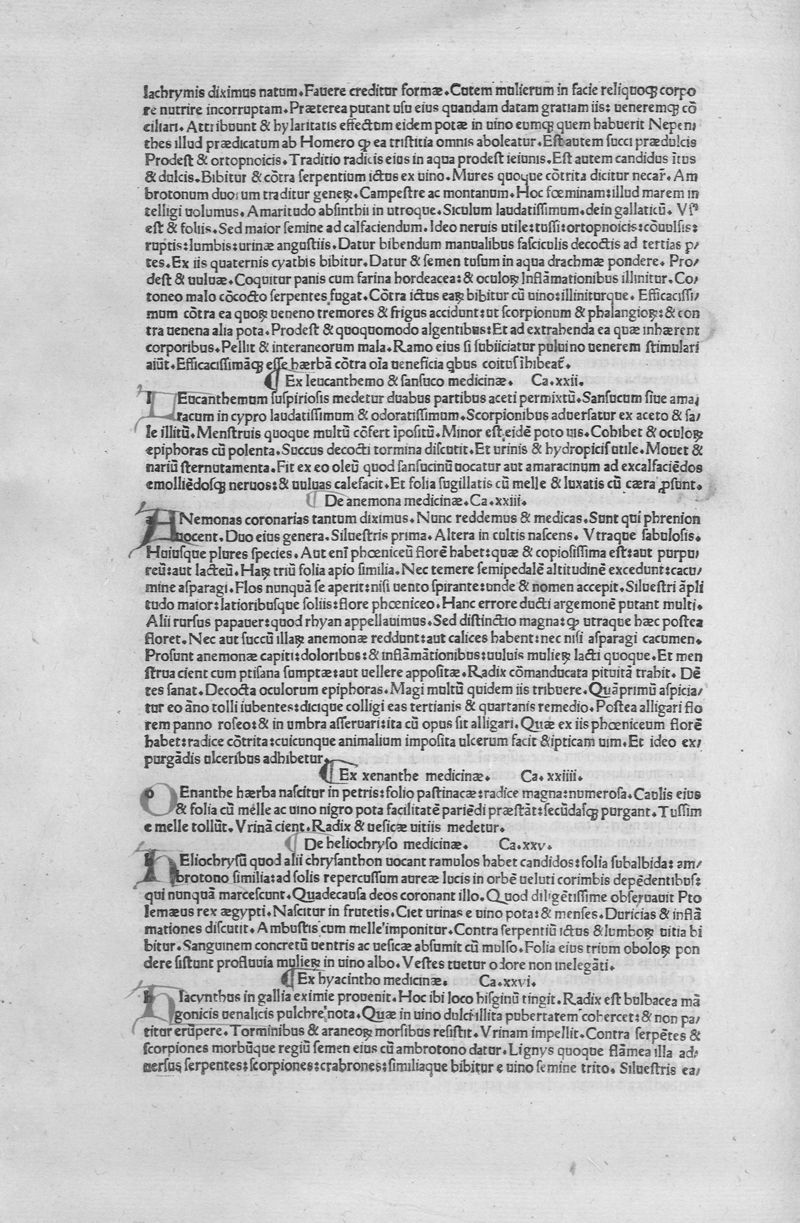 lachrymis diximus natum. Fauere creditur formæ. Cutem mulierum in facie reliquoꝗ corpo
re nutrire incorruptam. Præterea putant usu eius quandam datam gratiam iis: ueneremꝗ cō
ciliari. Attribuunt & hylaritatis effectum eidem potæ in uino eumꝗ quem habuerit Nepen/
thes illud prædicatum ab Homero ꝙ ea tristitia omnis aboleatur. Est autem succi prædulcis
Prodest & ortopnoicis. Traditio radicis eius in aqua prodest ieiunis. Est autem candidus ītus
& dulcis. Bibitur & cōtra serpentium ictus ex uino. Mures quoque cōtrita dicitur necar̄. Am
brotonum duorum traditur geneꝝ. Campestre ac montanum. Hoc fœminam: illud marem in
telligi uolumus. Amaritudo absinthii in utroque. Siculum laudatissimum. dein gallaticū. Vsꝰ
est & foliis. Sed maior semine ad calfaciendum. Ideo neruis utile: tussi: ortopnoicis: cōuulsis:
ruptis: lumbis: urinæ angustiis. Datur bibendum manualibus fasciculis decoctis ad tertias p/
tes. Ex iis quaternis cyathis bibitur. Datur & semen tusum in aqua drachmæ pondere. Pro/
dest & uuluæ. Coquitur panis cum farina hordeacea: & oculoꝝ Inflāmationibus illinitur. Co/
toneo malo cōcocto serpentes fugat. Cōtra ictus eaꝝ bibitur cū uino: illiniturque. Efficacissi/
mum cōtra ea quoꝝ ueneno tremores & frigus accidunt: ut scorpionum & phalangioꝝ: & con
tra uenena alia pota. Prodest & quoquomodo algentibus: Et ad extrahenda ea quæ inhærent
corporibus. Pellit & interaneorum mala. Ramo eius si subiiciatur puluino uenerem stimulari
aiūt. Efficacissimāꝗ esse hærbā cōtra oīa ueneficia ꝗbus coitus īhibeat̄.
¶ Ex leucanthemo & sansuco medicinæ. Ca.xxii.
LEucanthemum suspiriosis medetur duabus partibus aceti permixtū. Sansucum siue ama/
racum in cypro laudatissimum & odoratissimum. Scorpionibus aduersatur ex aceto & sa/
le illitū. Menstruis quoque multū cōfert īpositū. Minor est eidē poto uis. Cohibet & oculoꝝ
epiphoras cū polenta. Succus decocti tormina discutit. Et urinis & hydropicis utile. Mouet &
nariū sternutamenta. Fit ex eo oleū quod sansucinū uocatur aut amaracinum ad excalfaciēdos
emolliēdosꝗ neruos: & uuluas calefacit. Et folia sugillatis cū melle & luxatis cū cæra ꝓsunt.
¶ De anemona medicinæ. Ca.xxiii.
ANemonas coronarias tantum diximus. Nunc reddemus & medicas. Sunt qui phrenion
uocent. Duo eius genera. Siluestris prima. Altera in cultis nascens. Vtraque sabulosis.
Huiusque plures species. Aut enī phœniceū florē habet: quæ & copiosissima est: aut purpu/
reū: aut lacteū. Haꝝ triū folia apio similia. Nec temere semipedalē altitudinē excedunt: cacu/
mine asparagi. Flos nunquā se aperit: nisi uento spirante: unde & nomen accepit. Siluestri āpli
tudo maior: latioribusque foliis: flore phœniceo. Hanc errore ducti argemonē putant multi.
Alii rursus papauer: quod rhyan appellauimus. Sed distinctio magna: ꝙ utraque hæc postea
floret. Nec aut succū illaꝝ anemonæ reddunt: aut calices habent: nec nisi asparagi cacumen.
Prosunt anemonæ capiti: doloribus: & inflāmātionibus: uuluis mulieꝝ lacti quoque. Et men
strua cient cum ptisana sumptæ: aut uellere appositæ. Radix cōmanducata pituitā trahit. Dē
tes sanat. Decocta oculorum epiphoras. Magi multū quidem iis tribuere. Quāprimū aspicia/
tur eo āno tolli iubentes: dicique colligi eas tertianis & quartanis remedio. Postea alligari flo
rem panno roseo: & in umbra asseruari: ita cū opus sit alligari. Quæ ex iis phœniceum florē
habet: radice cōtrita: cuicunque animalium imposita ulcerum facit & ipticam uim. Et ideo ex/
purgādis ulceribus adhibetur.
¶ Ex xenanthe medicinæ. Ca.xxiiii.
OEnanthe hærba nascitur in petris: folio pastinacæ: radice magna: numerosa. Caulis eius
& folia cū melle ac uino nigro pota facilitatē pariēdi præstāt: secūdasꝗ purgant. Tussim
e melle tollūt. Vrinā cient. Radix & uesicæ uitiis medetur.
¶ De heliochryso medicinæ. Ca.xxv.
HEliochrysū quod alii chrysanthon uocant ramulos habet candidos: folia subalbida: am/
brotono similia: ad solis repercussum aureæ lucis in orbē ueluti corimbis depēdentibus:
qui nunquā marcescunt. Quadecausa deos coronant illo. Quod diligētissime obseruauit Pto
lemæus rex ægypti. Nascitur in frutetis. Ciet urinas e uino pota: & menses. Duricias & inflā
mationes discutit. Ambustis cum melle imponitur. Contra serpentiū ictus & lumboꝝ uitia bi
bitur. Sanguinem concretū uentris ac uesicæ absumit cū mulso. Folia eius trium oboloꝝ pon
dere sistunt profluuia mulieꝝ in uino albo. Vestes tuetur odore non inelegāti.
¶ Ex hyacintho medicinæ. Ca.xxvi.
HIacynthus in gallia eximie prouenit. Hoc ibi loco hisginū tingit. Radix est bulbacea mā
gonicis uenalicis pulchre nota. Quæ in uino dulci illita pubertatem cohercet: & non pa/
titur erūpere. Torminibus & araneoꝝ morsibus resistit. Vrinam impellit. Contra serpētes &
scorpiones morbūque regiū semen eius cū ambrotono datur. Lignys quoque flāmea illa ad/
uersus serpentes: scorpiones: crabrones: similiaque bibitur e uino semine trito. Siluestris ea/